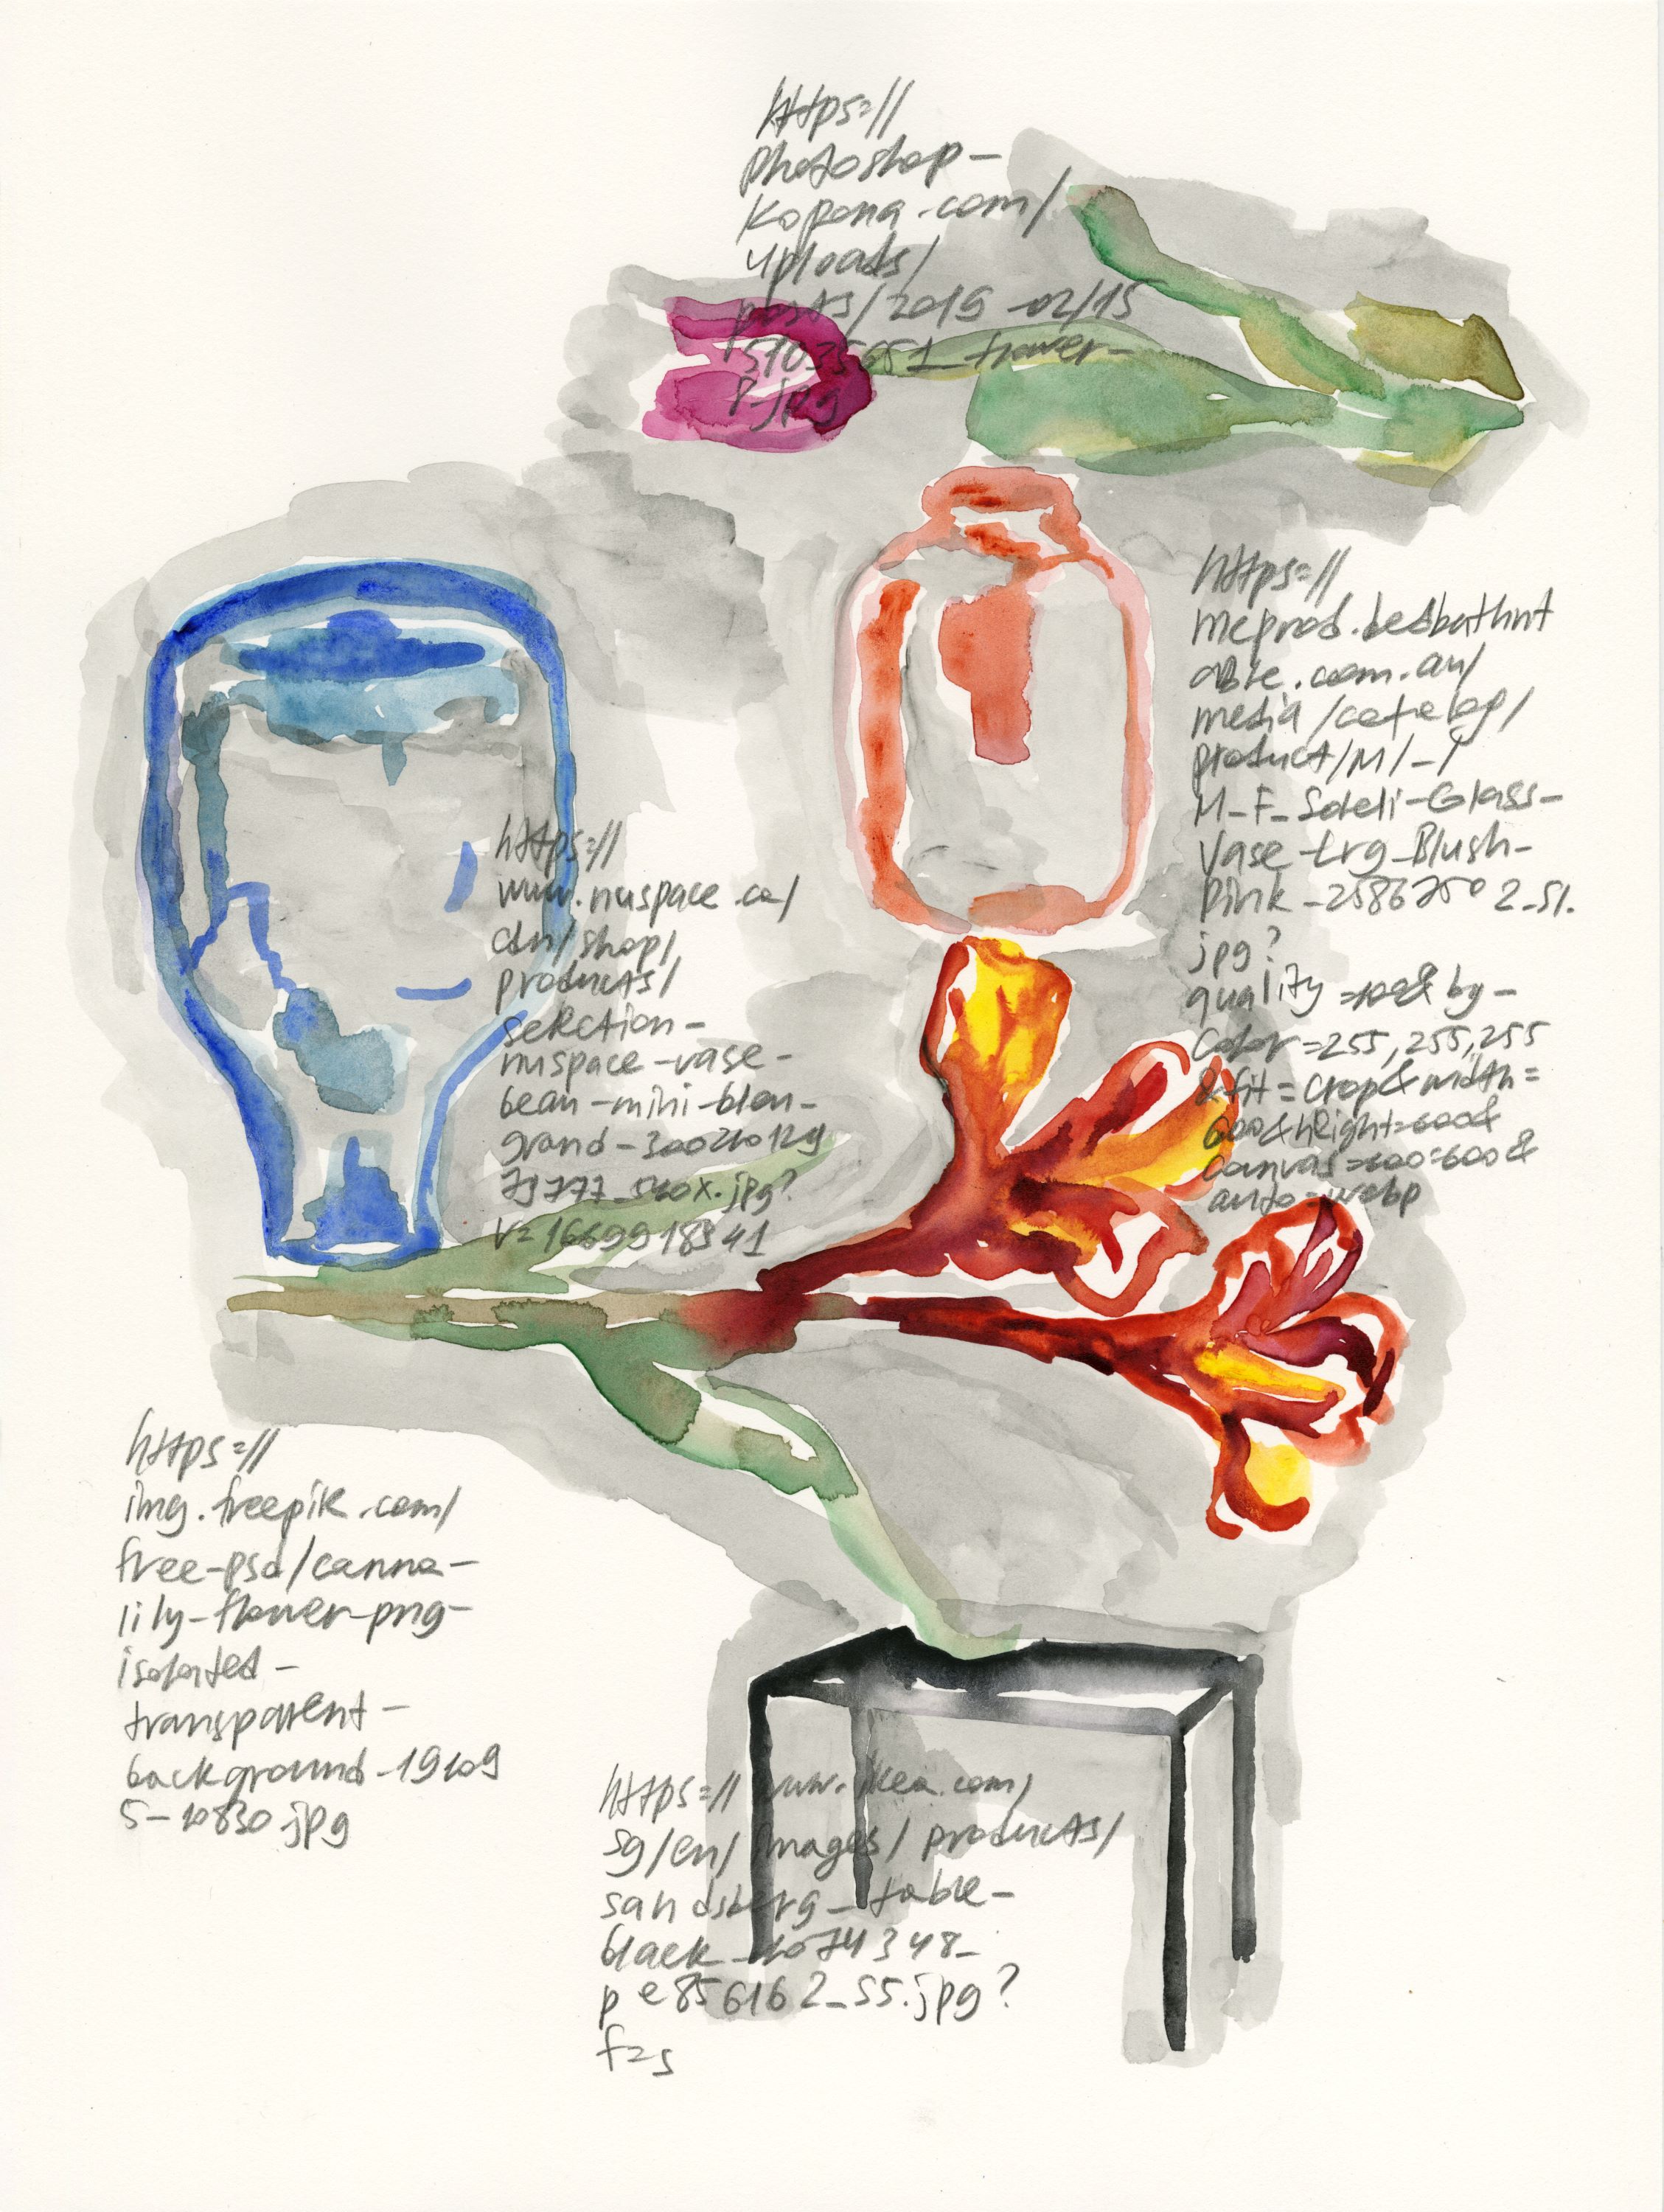 https://
photoshop-
kopona.com/
uploads/
posts/2019-02/15
51035651_flower-
p.jpg
https://
mcprod.bedbathnt
able.com.au/
media/catalog/
product/M/-/
M-F_Soleli-Glass-
Vase-Lrg_Blush-
Pink_25867502_S1.
jpg?
quality=100&bg-
color=255,255,255
&fit=crop&width=
600&height=600&
canvas=600:600&
auto=webp
https://
www.nuspace.ca/
cdn/shop/
products/
selection-
nuspace-vase-
bean-mini-blan-
grand-
540x.jpg?
v=1669918541
https://
img.freepik.com/
free-psd/canna-
lily-flower-png-
isolated-
transparent-
background-19109
5-10830.jpg
https://www.ikea.com/
sg/en/images/products/
sandsberg_table-
black_1074348_
pe856162_s5.jpg?
f=s